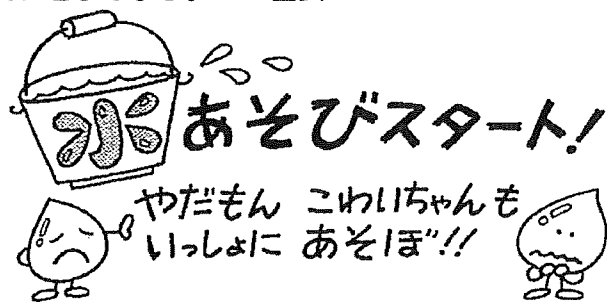 水あそびスタート!
やだもん こわいちゃんも
いっしょに あそぼ!!